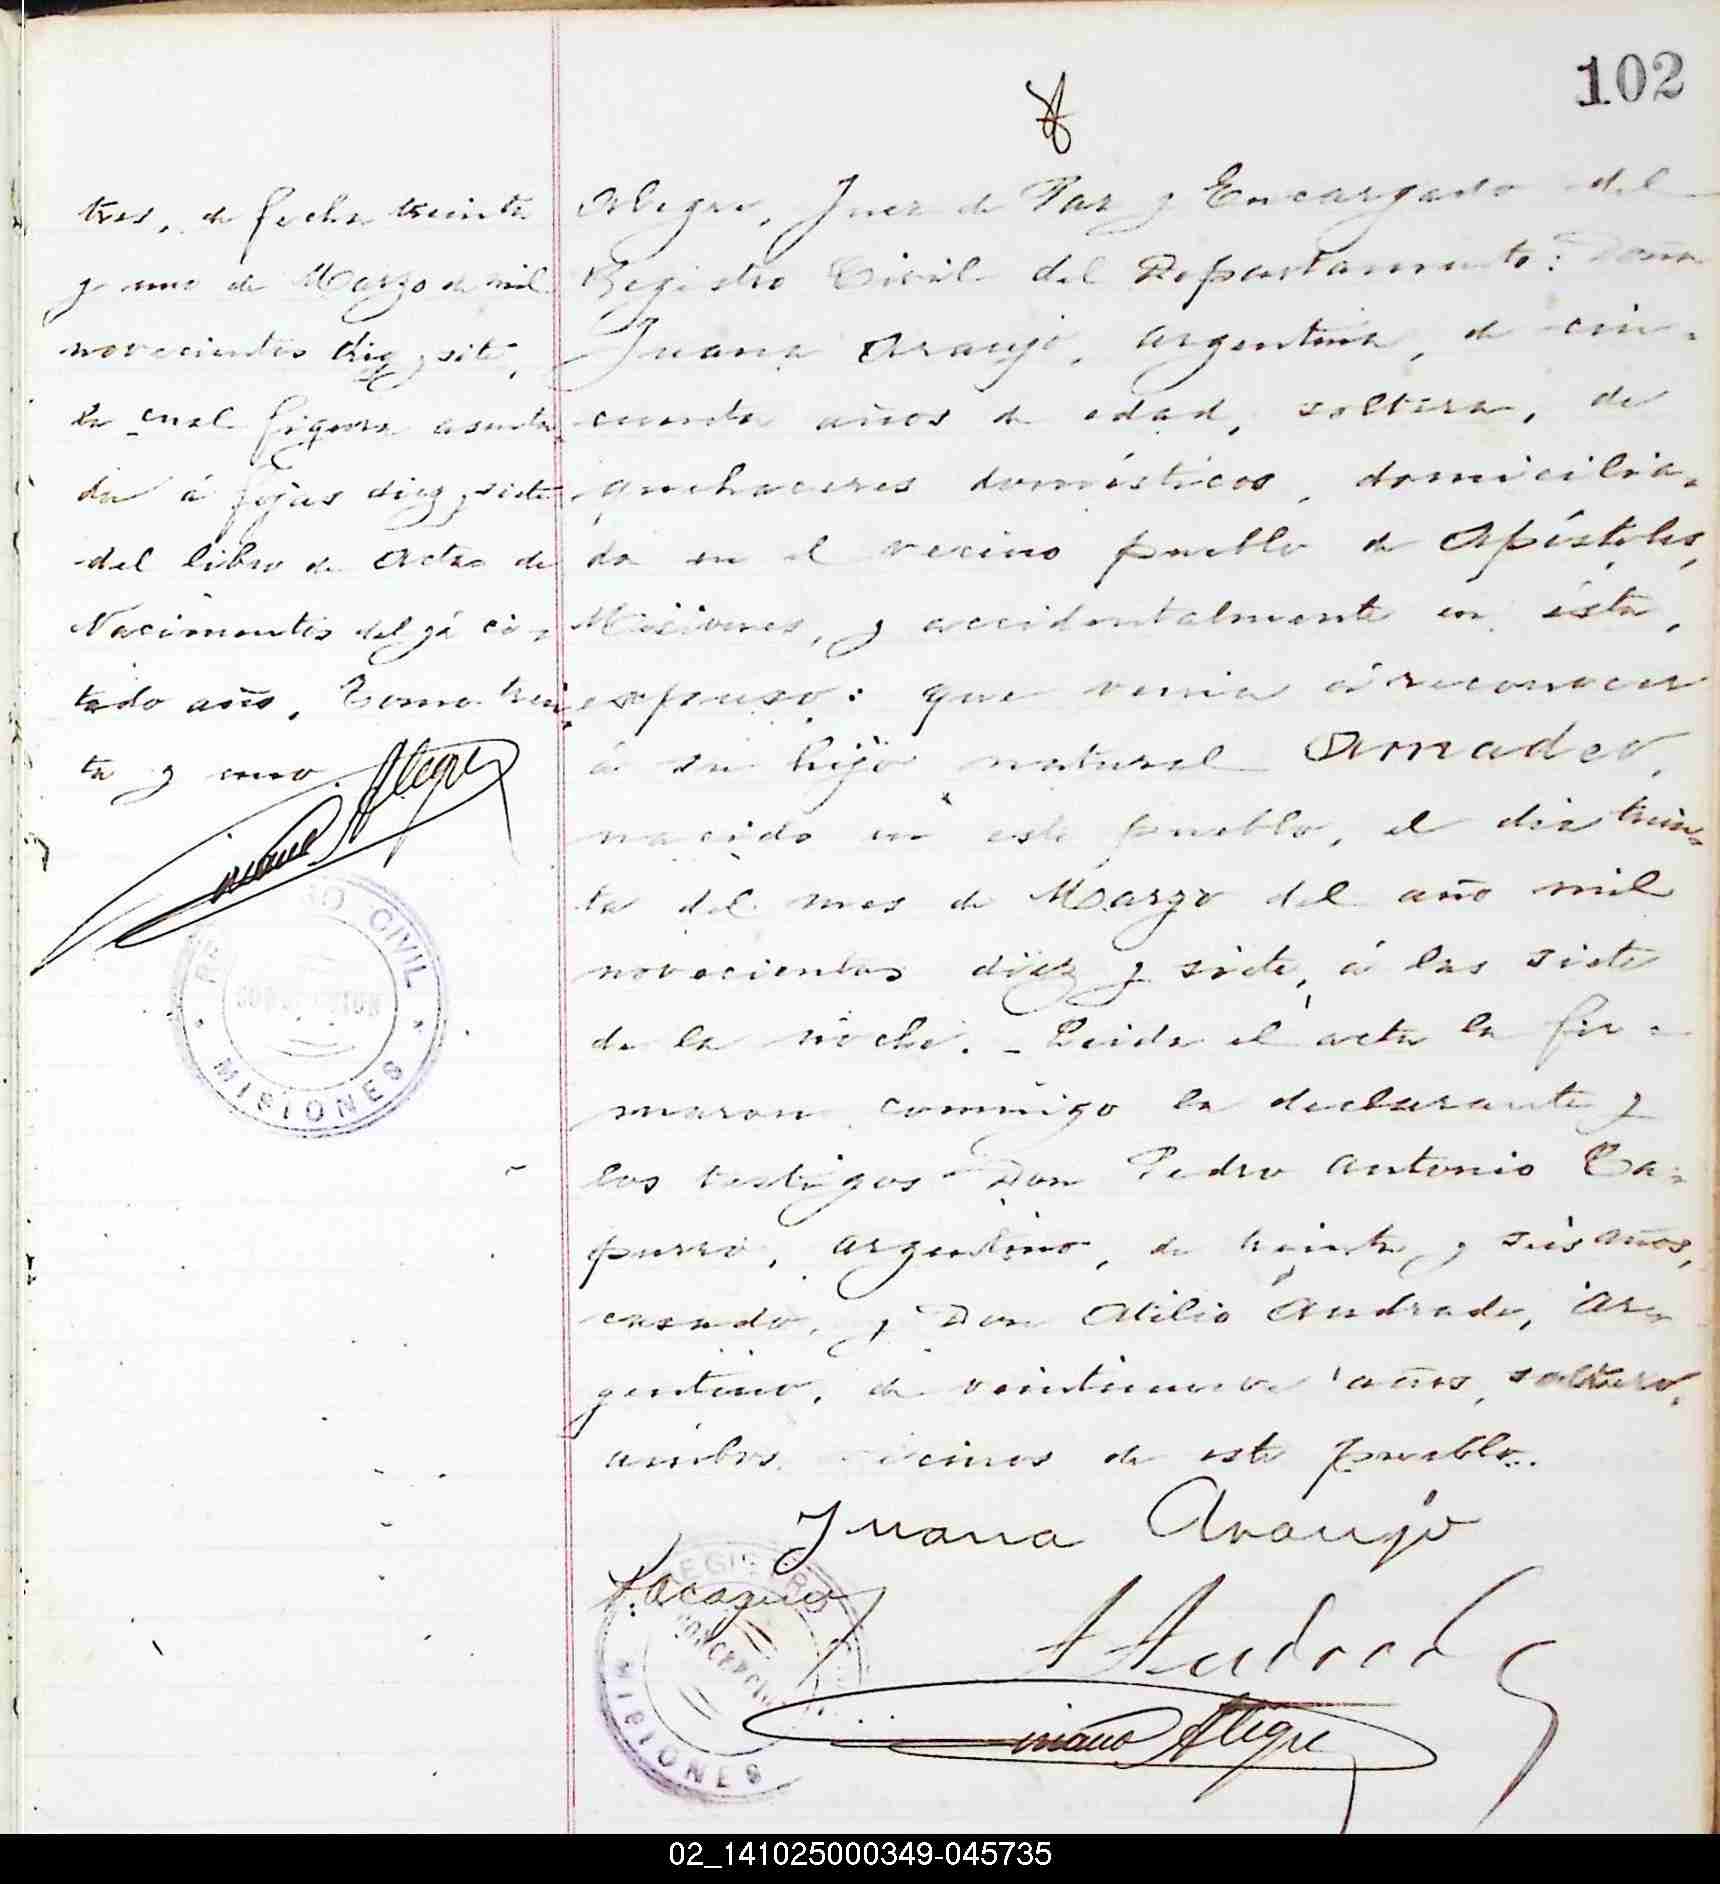 102
tres, de fecha treinta
y uno de Marzo de mil
novecientos diez y siete,
la cual figura asenta
da á fojas diez y siete
del libro de Actas de
Nacimientos del yá ci-
tado año, Tomo trein
ta y uno.
Ciriaco Alegre
REGISTRO CIVIL
CONCEPCION
MISIONES
Alegre, Juez de Paz y Encargado del
Registro Civil del Departamento: Doña
Juana Araujo, argentina, de cin-
cuenta años de edad, soltera, de
quehaceres domésticos, domicilia-
da en el vecino pueblo de Apóstoles,
Misiones, y accidentalmente en ésta,
expuso: que venia á reconocer
á su hijo natural Amadeo,
nacido en este pueblo, el dia trein-
ta del mes de Marzo del año mil
novecientos diez y siete, á las siete
de la noche. - Leida el acta la fir-
maron conmigo la declarante y
los testigos Don Pedro Antonio Ca-
purro, argentino, de treinta y seis años,
casado, y Don Atilio Andrade, ar-
gentino, de veintinueve años, soltero,
ambos vecinos de este pueblo.
Juana Araujo
A Andrade
REGISTRO
CONCEPCION
MISIONES
Ciriaco Alegre
02_141025000349-045735